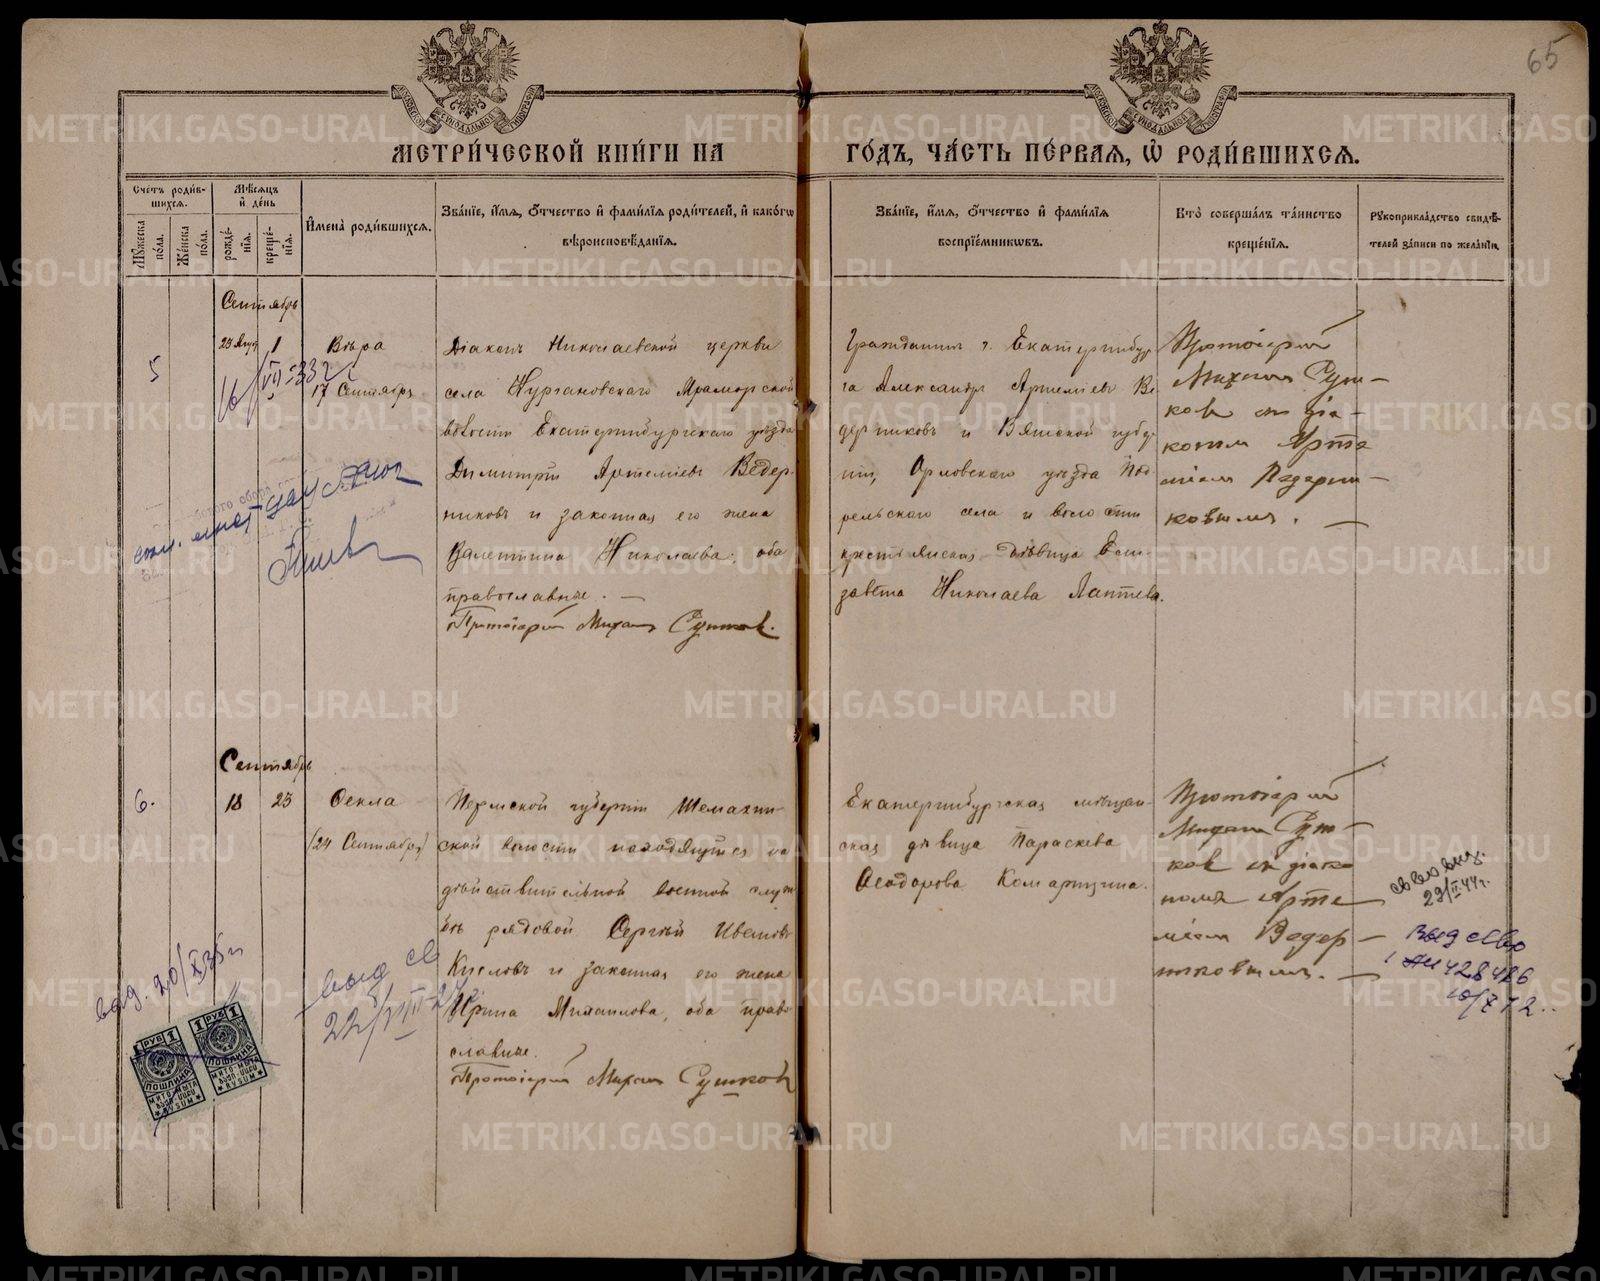 65
МЕТРИ́ЧЕСКОЙ КНИ́ГИ НА ГО́ДЪ, ЧА́СТЬ ПЕ́РВАЯ, Ѡ РОДИ́ВШИХСЯ.
Счетъ роди́в-
шихся.
Мꙋ́жеска по́ла.
Же́нска по́ла.
Мѣ́сяцъ и де́нь
рожде́-нія.
креще́-нія.
Имена̀ роди́вшихся.
Зва́ніе, и́мя, о́тчество и фами́лія роди́телей, и како́гѡ
вѣроисповѣ́данія.
Зва́ніе, и́мя, о́тчество и фами́лія
воспріе́мникѡвъ.
Кто̀ соверша́лъ та́инство
креще́нія.
Рꙋкоприкла́дство свидѣ́-
телей за́писи по жела́нію.
Сентябрь
5
1
Вѣра
17 Сентября
Діаконъ Николаевской церкви
села Кургановскаго Мраморской
волости Екатеринбургскаго уѣзда
Димитрій Артеміевъ Ведер-
никовъ и законная его жена
Валентина Николаева, оба
православные.
Протоіерей Михаилъ Сушковъ.
Гражданинъ г. Екатеринбур
га Александръ Артеміевъ Ве
дерниковъ и Вятской губер
ніи, Орловскаго уѣзда
села и волости
крестьянская дѣвица Ели-
завета Николаева Лаптева.
Протоіерей
Михаилъ Суш-
ковъ съ діа-
кономъ Арте
міемъ Ведерни-
ковымъ.
Сентябрь
6.
18
23
Ѳекла
(24 Сентября)
Пермской губерніи Шемахин-
ской волости находящійся на
дѣйствительной военной служ
бѣ рядовой Сергѣй Ивановъ
Кисловъ и законная его жена
Ирина Михаилова, оба право
славные.
Протоіерей Михаилъ Сушковъ
Екатеринбургская мѣщан-
ская дѣвица Параскева
Ѳеодорова
Протоіерей
Михаилъ Суш-
ковъ съ діако
номъ Арте
міемъ Ведер-
никовымъ.
29/II 44 г.
Выд св-во
428486
выд. 20/X 35 г
выд св
1 РУБ 1
ПОШЛИНА
МИТО-МЫТА
RYSUM
1 РУБ 1
ПОШЛИНА
МИТО-МЫТА
RYSUM
METRIKI.GASO-URAL.RU